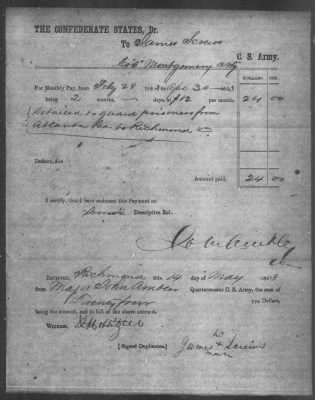 THE CONFEDERATE STATES, Dr.
To James Screws
Co. Montgomery Arty C. S. Army.
DOLLARS. CTS.
For Monthly Pay, from Feby 28 1863 to Apl 30 1863
being 2 months, — days, at $12 per month, 24 00
Detailed to guard prisoners from
Atlanta Ga to Richmond Va
Deduct, due
Amount paid, 24 00
I certify, that I have endorsed this Payment on
Descriptive Rol.
Received, Richmond this 14 day of May 1863
from Major John Ambler Quartermaster C. S. Army, the sum of
Twenty four 100 Dollars,
being the amount, and in full of the above account.
Witness
his
[Signed Duplicates.] James + Screws
mark